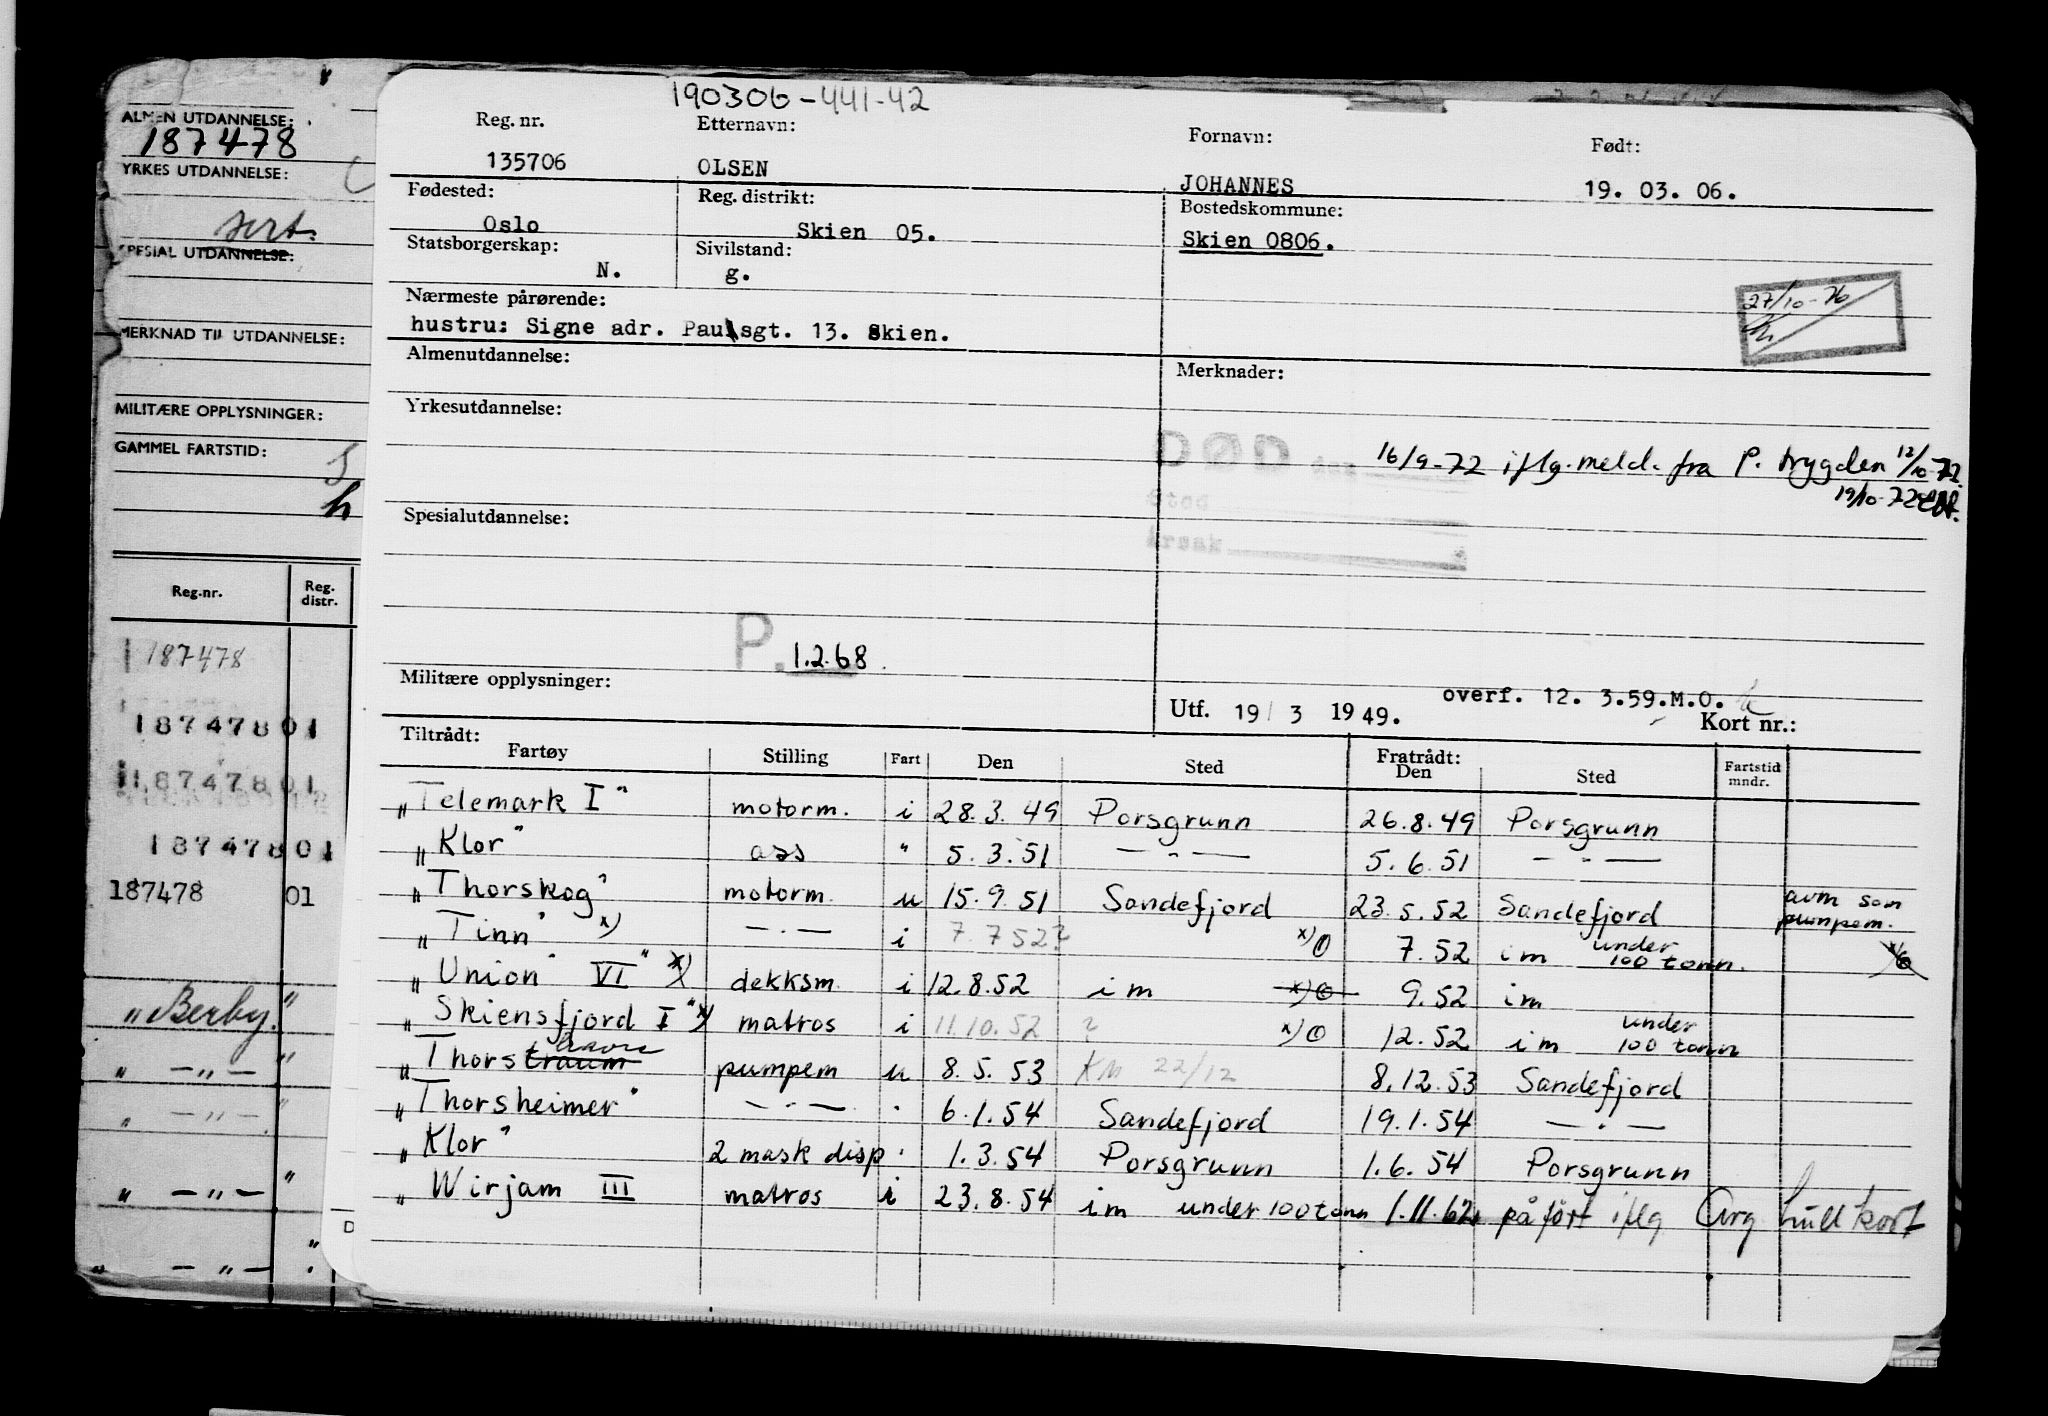 190306-441-42
ALMEN UTDANNELSE:
187478
YRKES UTDANNELSE:
sert.
SPESIAL UTDANNELSE:
MERKNAD TIL UTDANNELSE:
MILITÆRE OPPLYSNINGER:
GAMMEL FARTSTID:
h
Reg.nr. Reg. distr.
187478
187478 01
187478 01
187478 01
187478 01
„Berby."
„ —„—"
„ —„—"
„ —„—"
„ —„—"
Reg. nr. Etternavn: Fornavn: Født:
135706 OLSEN JOHANNES 19. 03. 06.
Fødested: Reg. distrikt: Bostedskommune:
Oslo Skien 05. Skien 0806.
Statsborgerskap: Sivilstand:
N. g.
27/10-76
Nærmeste pårørende:
hustru: Signe adr. Paulsgt. 13. Skien.
Almenutdannelse: Merknader:
Yrkesutdannelse:
DØD den 16/9-72 iflg. meld. fra P. trygden 12/10-72.
19/10-72
Sted
Årsak
Spesialutdannelse:
P. 1.2.68.
Militære opplysninger:
overf. 12. 3.59.M.O.
Utf. 19/3 1949. Kort nr.:
Tiltrådt: Fratrådt:
Fartøy Stilling Fart Den Sted Den Sted Fartstid mndr.
„Telemark I" motorm. i 28.3.49 Porsgrunn 26.8.49 Porsgrunn
„Klor" ass " 5.3.51 —"— 5.6.51 —"—
„Thorskog" motorm. u 15.9.51 Sandefjord 23.5.52 Sandefjord avm som pumpem.
„Tinn" x) —"— i 7.7 52? x) 7.52 im under 100 tonn.
„Union VI" x) dekksm. i 12.8.52 im x) 9.52 im
„Skiensfjord I" x) matros i 11.10.52 ? x) 12.52 im under 100 tonn
„Thorstraum havre pumpem u 8.5.53 KM 22/12 8.12.53 Sandefjord
„Thorsheimer" —"— " 6.1.54 Sandefjord 19.1.54 —"—
„Klor" 2 mask disp " 1.3.54 Porsgrunn 1.6.54 Porsgrunn
„Wirjam III matros i 23.8.54 im under 100 tonn 1.11.62 påført iflg Arg hullkort